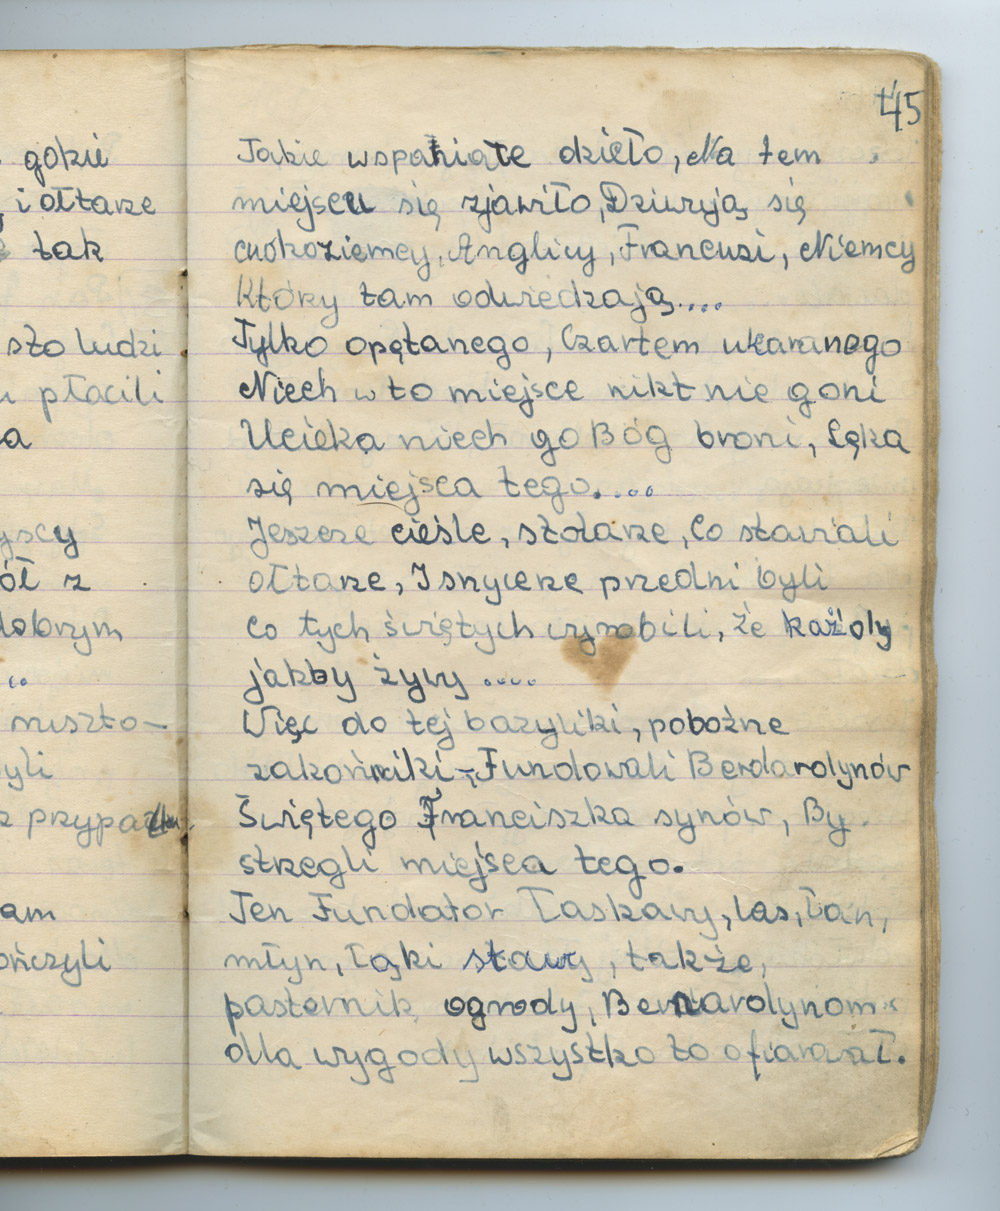 gdzie
i ołtarze
tak
sto ludzi
płacili
a
ół z
dobrym
..
nuszto-
yli
z przypadku
am
ończyli
145
Jakie wspaniałe dzieło, Na tem
miejscu się zjawiło, Dziwują się
cudzoziemcy, Anglicy, Francusi, Niemcy
Który tam odwiedzają....
Tylko opętanego, Czartem ukaranego
Niech w to miejsce nikt nie goni
Ucieka niech go Bóg broni, Lęka
się miejsca tego....
Jeszcze cieśle, stolarze, Co stawiali
ołtarze, I snycerze przedni byli
Co tych świętych wyrobili, że każdy
jakby żywy ....
Więc do tej bazyliki, pobożne
zakońniki -, Fundowali Berdardynów
Świętego Franciszka synów, By
strzegli miejsca tego.
Ten Fundator Łaskawy, las, Łan,
młyn, Łąki stawy, także,
pasternik, ogrody, Bernardynom
dla wygody wszystko to ofiarował.